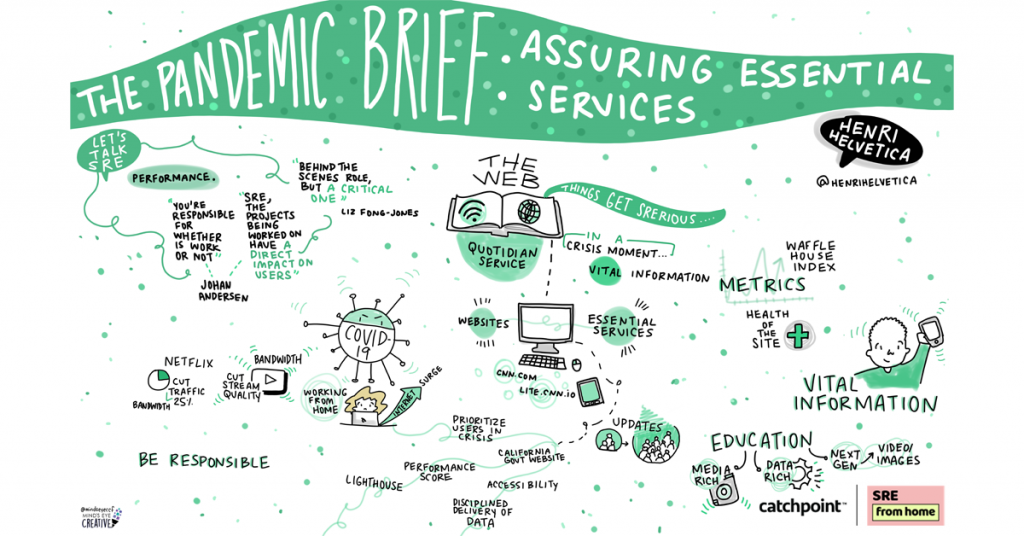 THE PANDEMIC BRIEF: ASSURING ESSENTIAL
SERVICES
HENRI
HELVETICA
@HENRIHELVETICA
LET'S
TALK
SRE
PERFORMANCE.
"YOU'RE
RESPONSIBLE
FOR
WHETHER
IS WORK
OR NOT"
"SRE,
THE
PROJECTS
BEING
WORKED ON
HAVE A
DIRECT
IMPACT ON
USERS"
JOHAN
ANDERSEN
"BEHIND THE
SCENES ROLE,
BUT A CRITICAL
ONE"
LIZ FONG-JONES
THE
WEB
QUOTIDIAN
SERVICE
THINGS GET SRERIOUS....
IN A
CRISIS MOMENT...
VITAL INFORMATION
WAFFLE
HOUSE
INDEX
METRICS
HEALTH
OF
THE
SITE
VITAL
INFORMATION
COVID-
19
NETFLIX
CUT
TRAFFIC
25%
BANDWIDTH
BANDWIDTH
CUT
STREAM
QUALITY
WORKING
FROM
HOME
INTERNET
SURGE
BE RESPONSIBLE
WEBSITES
ESSENTIAL
SERVICES
CNN.COM
LITE.CNN.IO
UPDATES
PRIORITIZE
USERS IN
CRISIS
CALIFORNIA
GOVT WEBSITE
PERFORMANCE
SCORE
LIGHTHOUSE
ACCESSIBILITY
DISCIPLINED
DELIVERY OF
DATA
EDUCATION
MEDIA
RICH
DATA
RICH
NEXT
GEN
VIDEO/
IMAGES
MIND'S EYE
CREATIVE
catchpoint™
SRE
from home